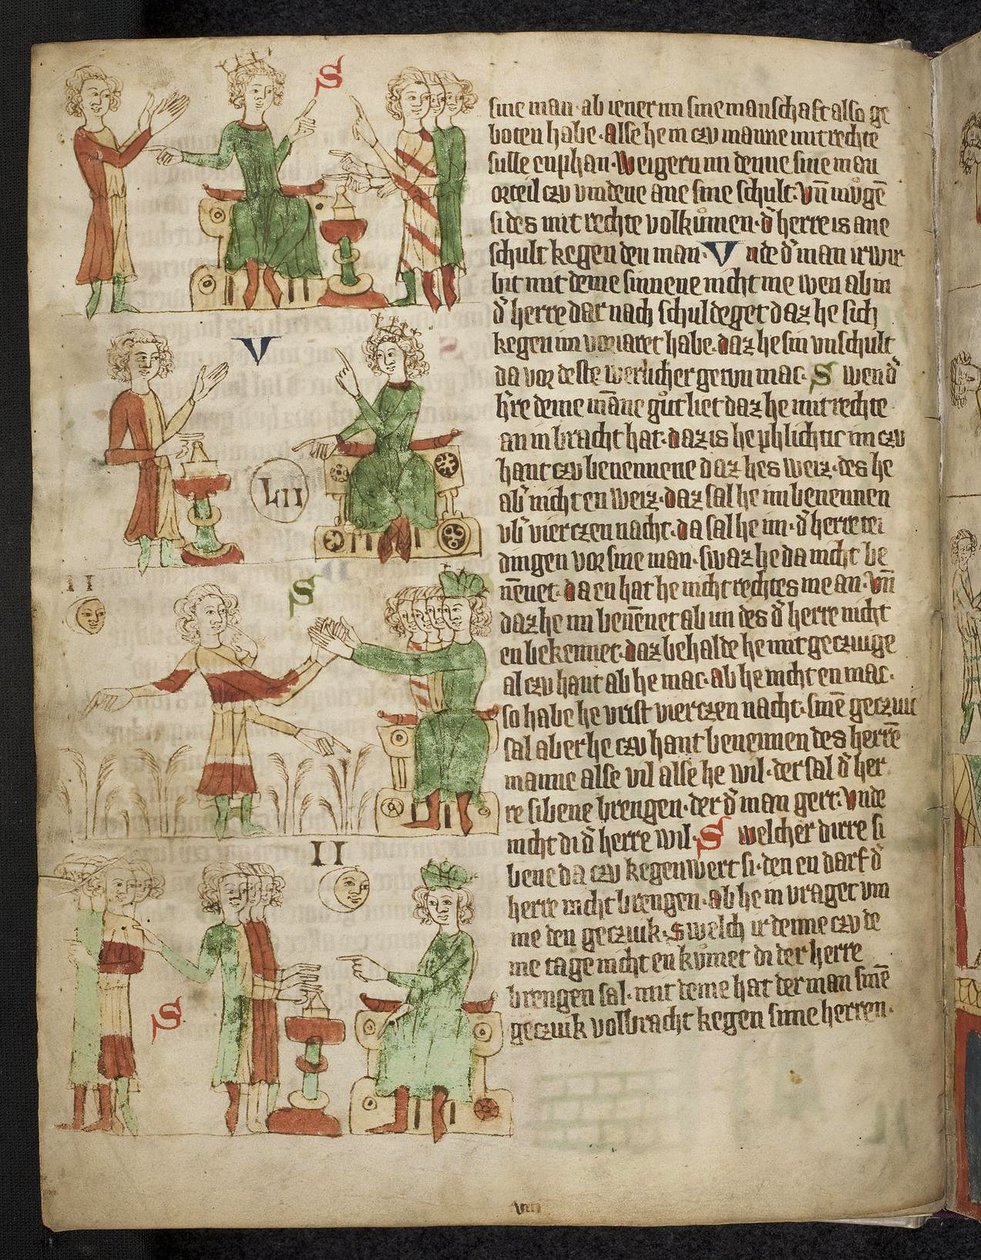 S
V
LII
II
S
II
S
sine man · ab iener im sine manschaft also ge
boten habe · Alse hem czu manne mit rechte
sulle enphan · Weigern im denne sine man
orteil czu vindene ane sine schult · Vn̄ muͦgē
si des mit rechte volkumen · d' herre is ane
schult kegen den man · Vnde d' man irwir
bit mit deme sinnene nicht me wen ab in
d' herre dar nach schuldeget daz he sich
kegen im voriaret habe · daz he sin vnschult
da vor deste werlicher getun mac · S wen d'
h're deme māne gut liet daz he mit rechte
an in bracht hat · daz is he phlichtic im czu
hant czu benennene daz hes weiz · des he
ab' nicht en weiz · daz sal he im benennen
vb' viertzen nacht · da sal he im · d' herre tei
dingen vor sine man · swaz he da nicht be
nēnet · da en hat he nicht rechtes me an · Vn̄
daz he im benēnet ab im des d' herre nicht
en bekennet · daz behalde he mit geczuige
al czu hant ab he mac · ab he nicht en mac ·
so habe he vrist viertzen nacht · sinē geczuic
sal aber he czu hant benennen des herrē
manne alse vil alse he wil · der sal d' her
re sibene brengen · der d' man gert · Vnde
nicht di d' herre wil · S welcher dirre si
bene da czu kegenwert si · den en darf d'
herre nicht brengen · ab hem vraget vm
me den geczuik · S welch ir denne czu de
me tage nicht en kumet di der herre
brengen sal · mit deme hat der man sinē
geczuik volbracht kegen sime herren ·
VIII